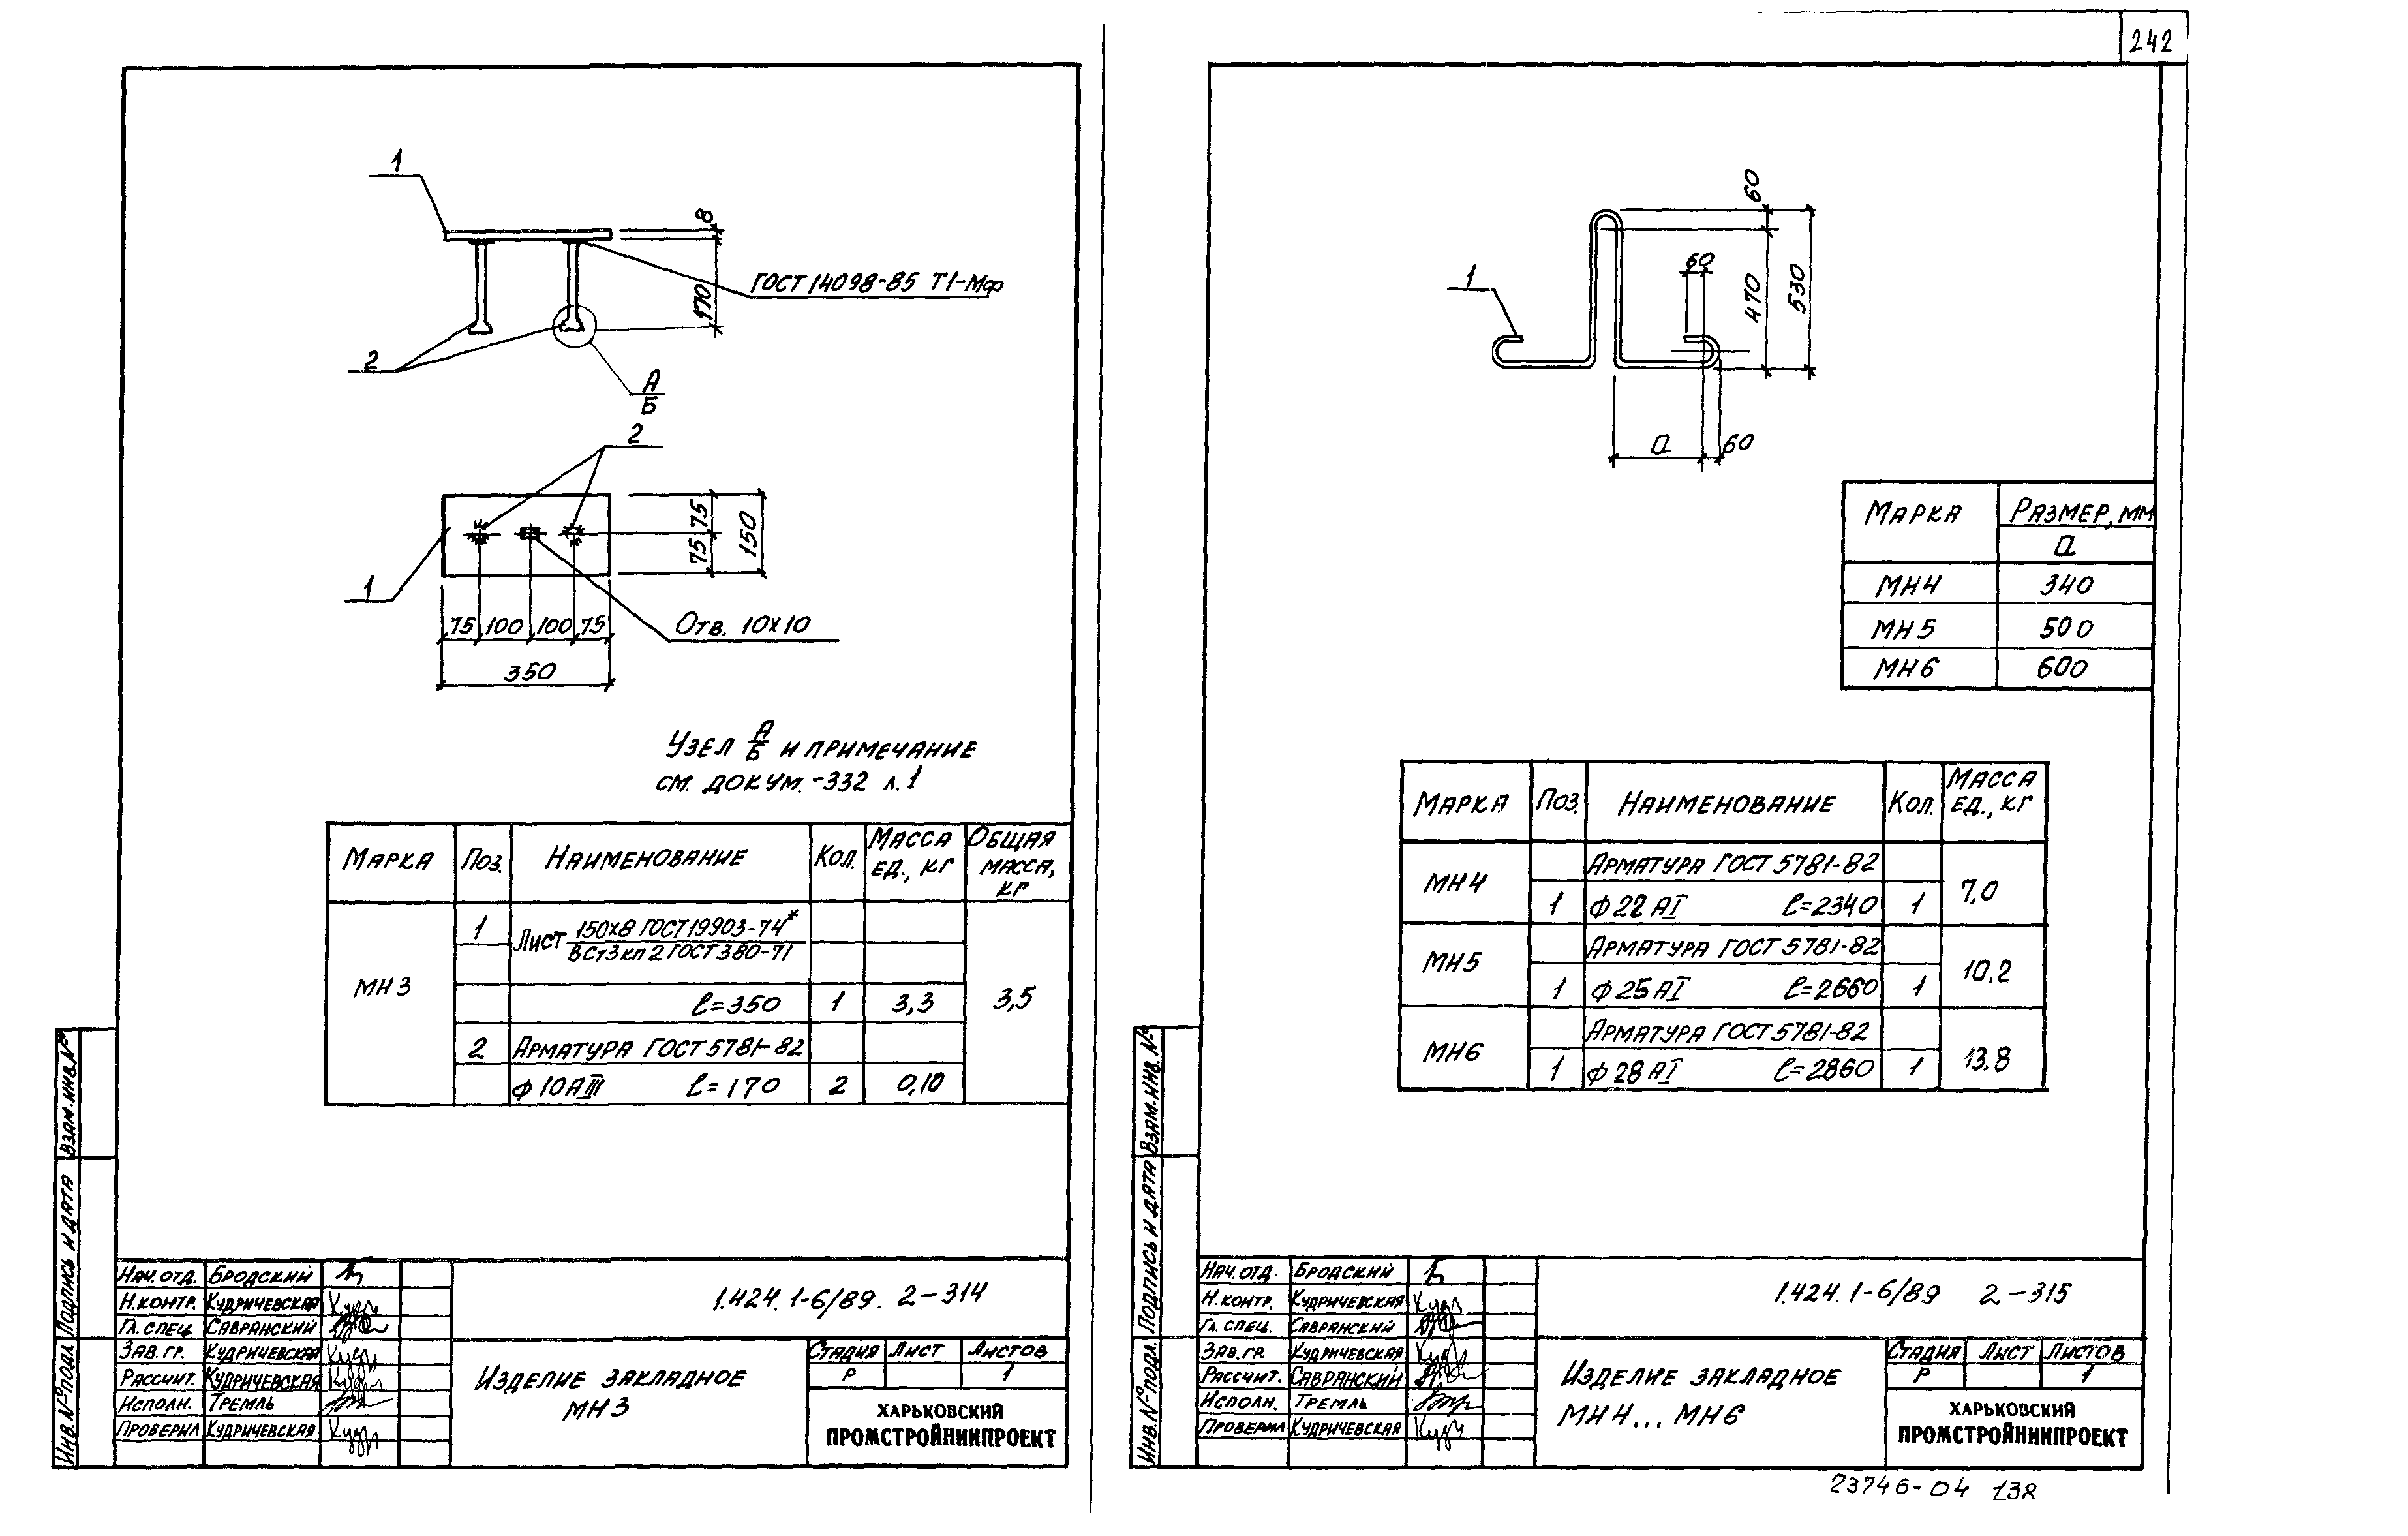 242
1
8
ГОСТ 14098-85 Т1-Мф
170
2
А
Б
2
75
75
150
1
75 100 100 75
Отв. 10х10
350
Узел А/Б и примечание
см. докум. -332 л.1
Марка Поз. Наименование Кол. Масса ед., кг Общая масса, кг
МН3 1 Лист 150х8 ГОСТ 19903-74* / ВСт3кп2 ГОСТ 380-71
ℓ=350 1 3,3 3,5
2 Арматура ГОСТ 5781-82
Ф10АIII ℓ=170 2 0,10
Взам.инв.№
Подпись и дата
Инв.№подл.
Нач.отд. Бродский
Н.контр. Кудричевская
Гл.спец. Савранский
Зав.гр. Кудричевская
Рассчит. Кудричевская
Исполн. Тремль
Проверил Кудричевская
1.424.1-6/89. 2-314
Изделие закладное
МН3
Стадия Лист Листов
Р 1
ХАРЬКОВСКИЙ
ПРОМСТРОЙНИИПРОЕКТ
60
60
1
470
530
а
60
Марка Размер, мм
а
МН4 340
МН5 500
МН6 600
Марка Поз. Наименование Кол. Масса ед., кг
МН4 Арматура ГОСТ 5781-82 7,0
1 Ф22АI ℓ=2340 1
МН5 Арматура ГОСТ 5781-82 10,2
1 Ф25АI ℓ=2660 1
МН6 Арматура ГОСТ 5781-82 13,8
1 Ф28АI ℓ=2860 1
Взам.инв.№
Подпись и дата
Инв.№подл.
Нач.отд. Бродский
Н.контр. Кудричевская
Гл.спец. Савранский
Зав.гр. Кудричевская
Рассчит. Савранский
Исполн. Тремль
Проверил Кудричевская
1.424.1-6/89 2-315
Изделие закладное
МН4...МН6
Стадия Лист Листов
Р 1
ХАРЬКОВСКИЙ
ПРОМСТРОЙНИИПРОЕКТ
23746-04 138